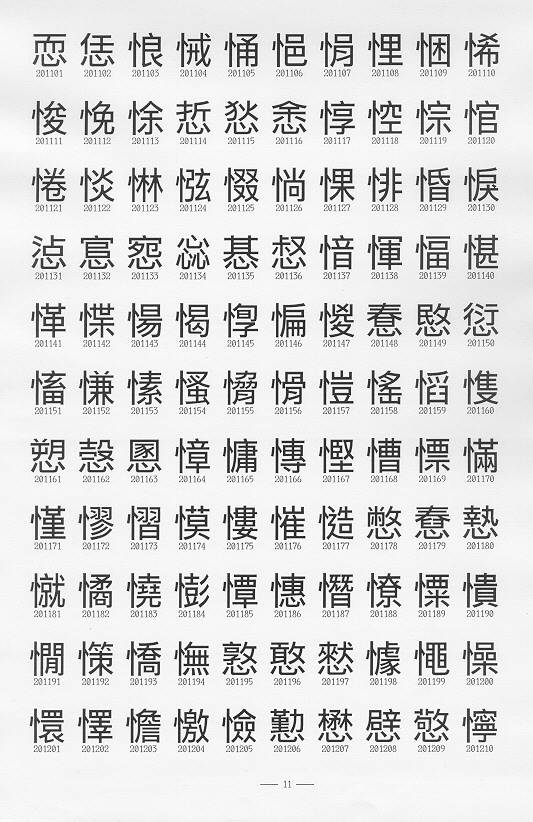 恧 恁 悢 悈 悀 悒 悁 悝 悃 悕
201101 201102 201103 201104 201105 201106 201107 201108 201109 201110
悛 悗 悇 悊 悐 悆 惇 悾 悰 悹
201111 201112 201113 201114 201115 201116 201117 201118 201119 201120
惓 惔 惏 惤 惙 惝 惈 悱 惛 悷
201121 201122 201123 201124 201125 201126 201127 201128 201129 201130
惉 惌 惢 惎 惄 愔 惲 愊 愖
201131 201132 201133 201134 201135 201136 201137 201138 201139 201140
愅 惵 愓 愒 惸 惼 惾 惷 愍 愆
201141 201142 201143 201144 201145 201146 201147 201148 201149 201150
慉 慊 愫 慅 愶 愲 愷 愮 慆
201151 201152 201153 201154 201155 201156 201157 201158 201159 201160
愬 慤 慞 慵 慱 慳 慒 慓 慲
201161 201162 201163 201164 201165 201166 201167 201168 201169 201170
慬 憀 慴 慔 慺 慛 慥 憋 惷 慹
201171 201172 201173 201174 201175 201176 201177 201178 201179 201180
憱 憰 憢 憉 憛 憓 憯 憭 憟 憒
201181 201182 201183 201184 201185 201186 201187 201188 201189 201190
憪 憡 憍 憮 憝 憨 憖 懅 憴 懆
201191 201192 201193 201194 201195 201196 201197 201198 201199 201200
懁 懌 憺 憿 憸 懃 懋 憵 憼 懧
201201 201202 201203 201204 201205 201206 201207 201208 201209 201210
11